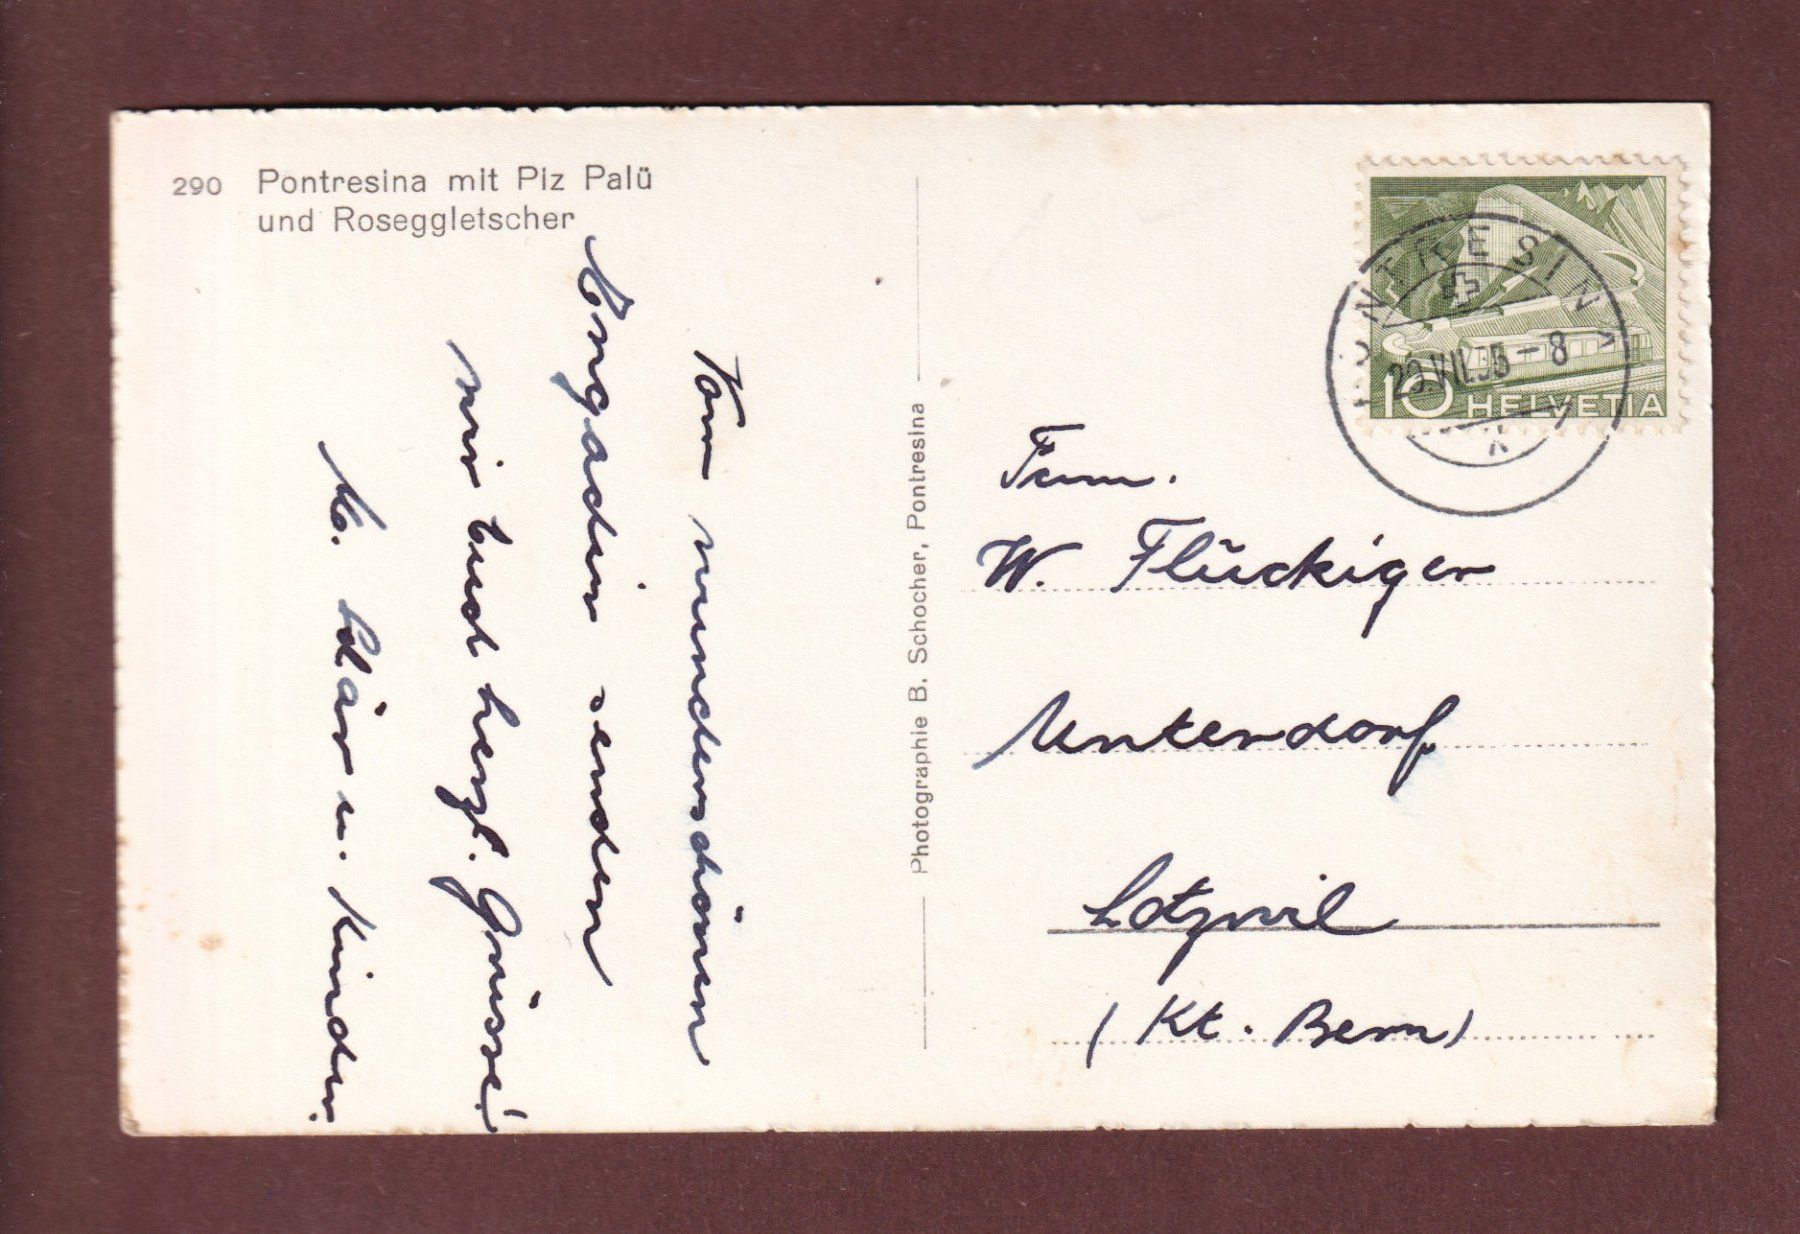 290 Pontresina mit Piz Palü
und Roseggletscher
Vom wunderschönen
Engadin senden
wir Euch herzl. Grüsse!
u. Kinder.
Photographie B. Schocher, Pontresina
PONTRESINA
29.VII.55-8
10 HELVETIA
Fam.
W. Flückiger
Unterdorf
Lotzwil
(Kt. Bern)